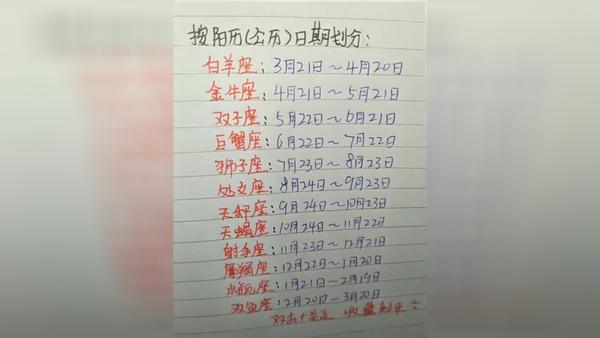 按阳历(公历)日期划分:
白羊座:3月21日~4月20日
金牛座:4月21日~5月21日
双子座:5月22日~6月21日
巨蟹座:6月22日~7月22日
狮子座:7月23日~8月23日
处女座:8月24日~9月23日
天秤座:9月24日~10月23日
天蝎座:10月24日~11月22日
射手座:11月23日~12月21日
摩羯座:12月22日~1月20日
水瓶座:1月21日-2月19日
双鱼座:2月20日-3月20日
双击+关注 收藏起来